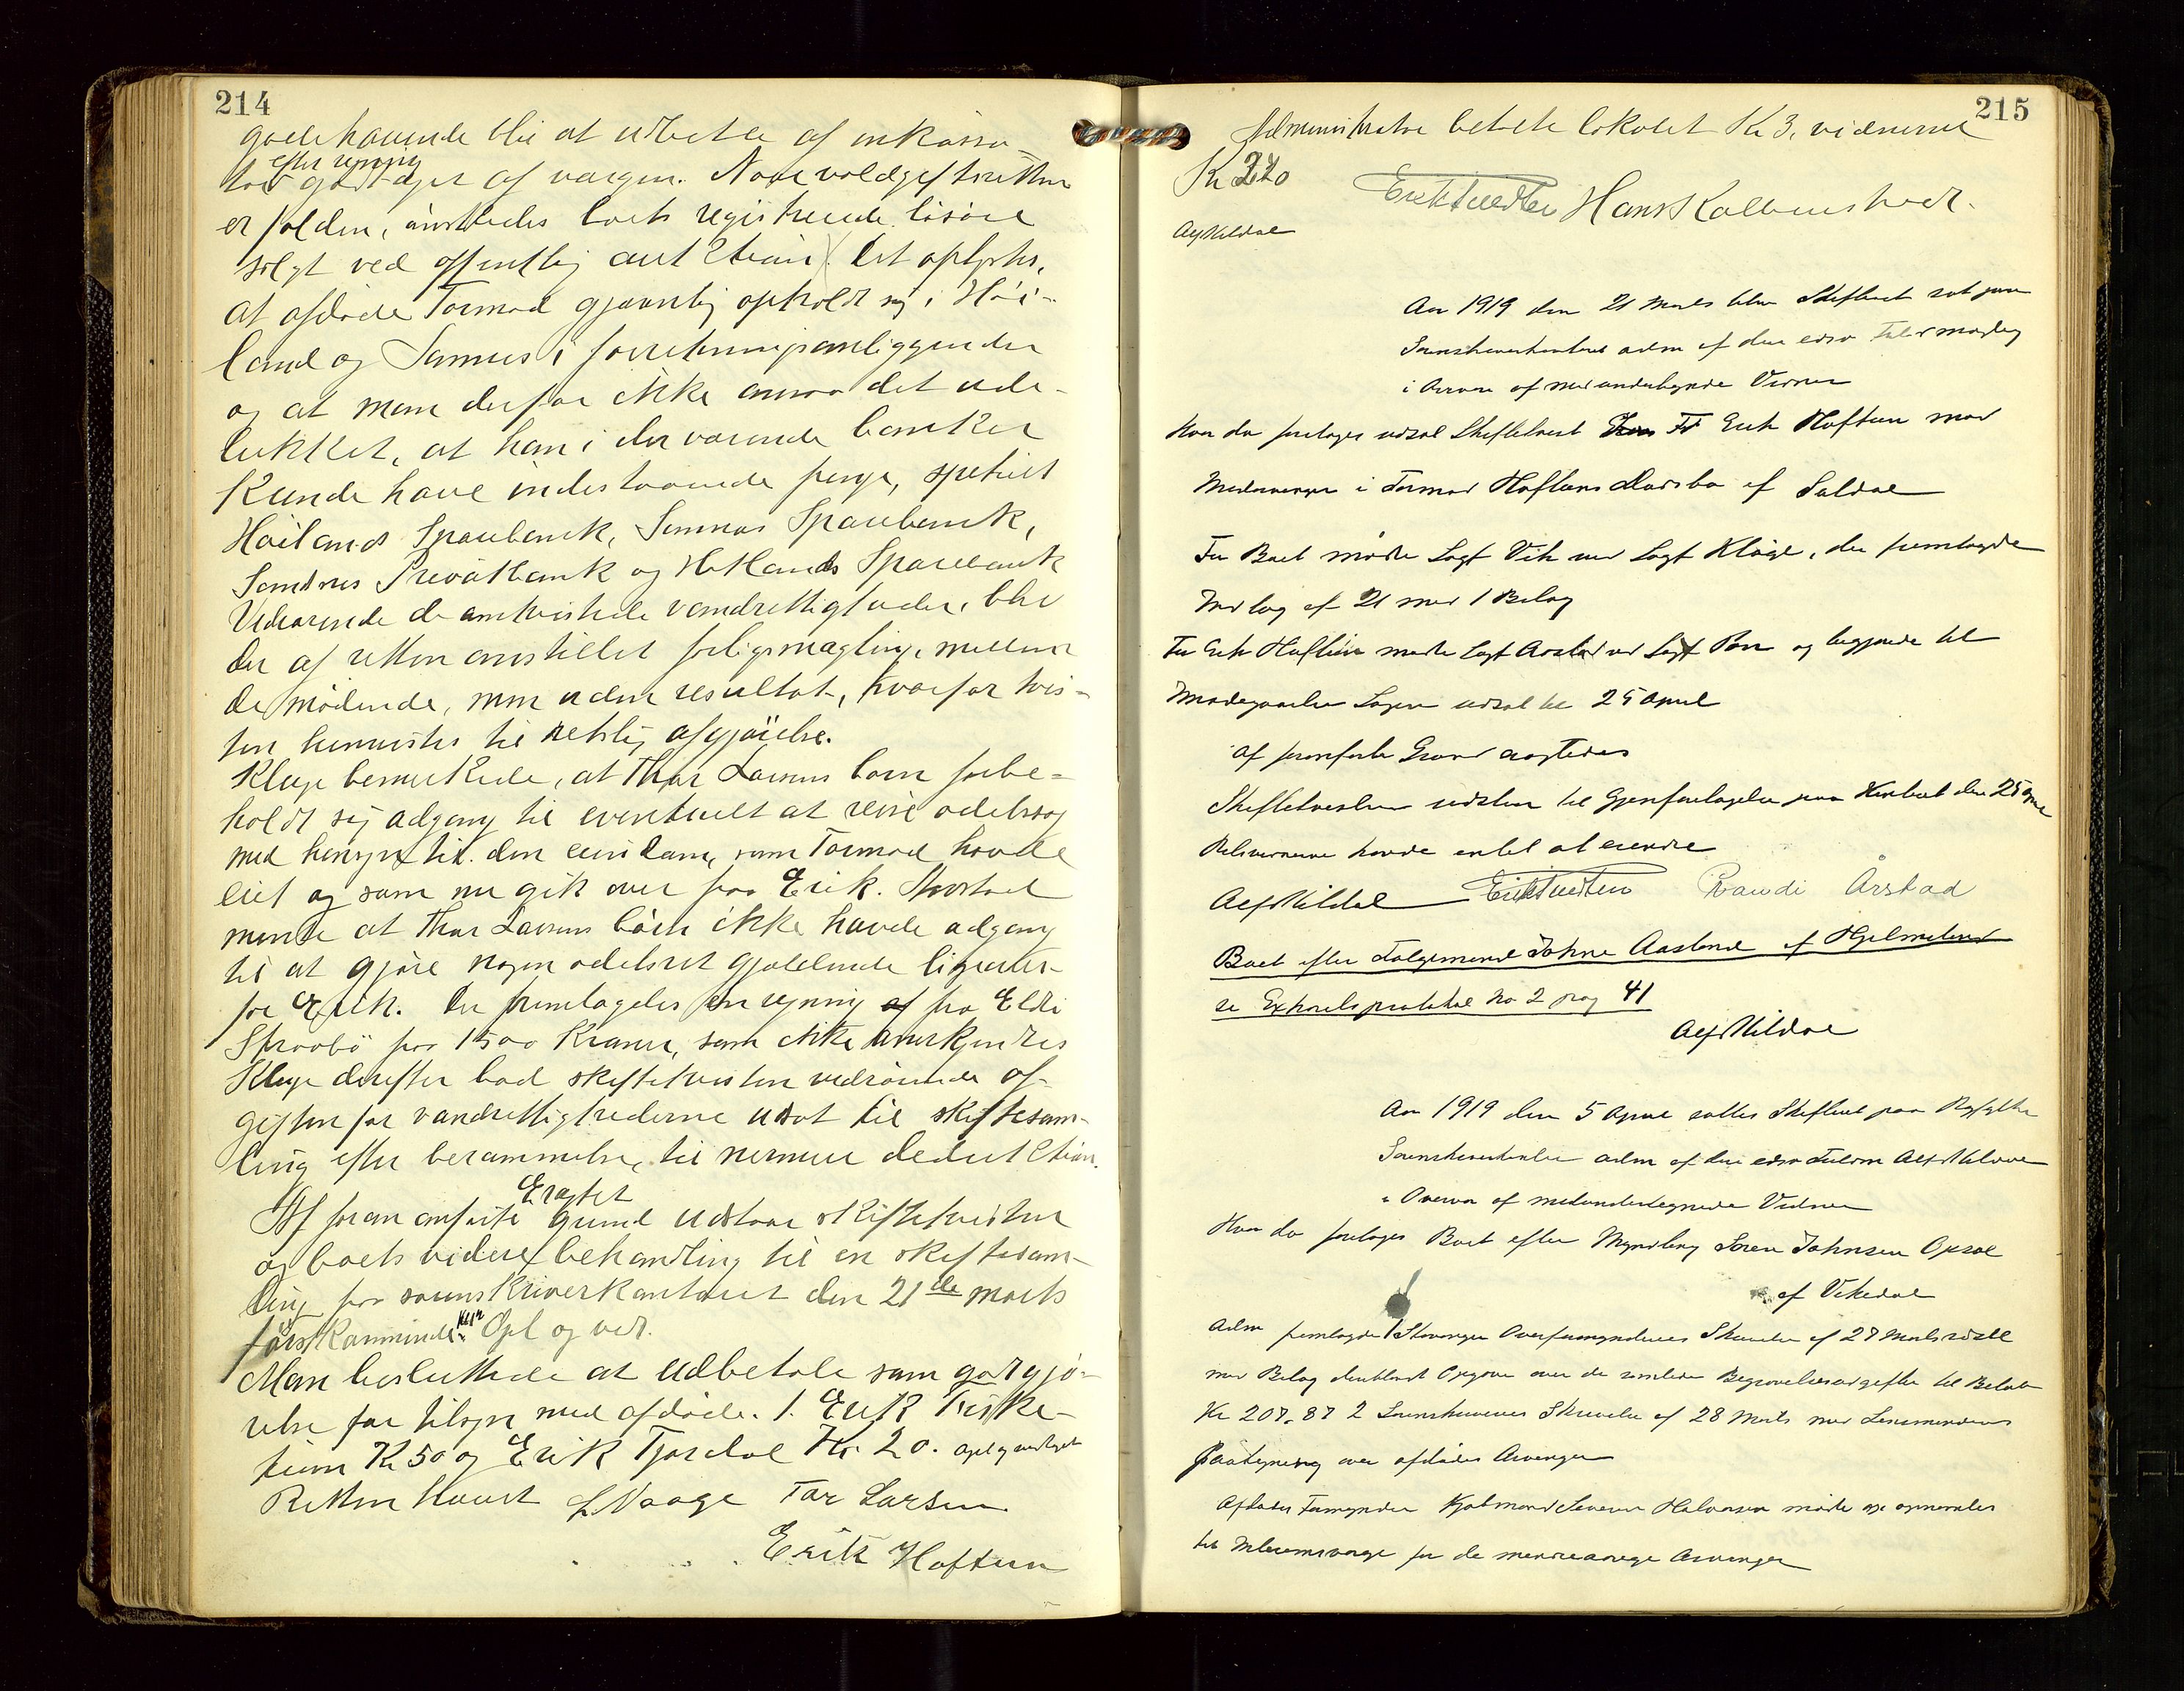 214
godehavende blir at udbetale af inkasso-
efter regning
tor godtages af vargen. Naar voldgiftsretten
er falden, ønskedes boets registrerede løsøre
solgt ved offentlig auktion. Det oplystes,
at afdøde Tormod gjævnlig opholdt sig i Høi-
land og Sannes i forretningsanliggender
og at man derfor ikke ansaa det ude-
lukket, at han i derværende banker
kunde have indestaaende penge, specielt
Høilands Sparebank, Sannes Sparebank,
Sandnes Privatbank og Hetlands Sparebank
Vedrørende de omtvistede vandrettigheder, blev
der af retten anstillet forligsmægling mellem
de mødende, men uden resultat, hvorfor tvis-
ten henvistes til retslig afgjørelse.
Kluge bemerkede, at Thor Larsens børn forbe-
holdt sig adgang til eventuelt at reise odelssag
med hensyn til den eiendom, som Tormod havde
eiet og som nu gik over paa Erik. Aarstad
mente at Thor Larsens børn ikke havde adgang
til at gjøre nogen odelsret gjældende ligeover-
for Erik. Der fremlagdes en regning af fra Eldri
Skrabø paa 1500 Kroner, som ikke anerkjendtes
Kluge derefter bad skiftetvisten vedrørende af-
giften for vandrettighederne udsat til skiftesam-
ling efter berammelse, til nærmere deduktion.
Eragtet
Af foran anførte grund udstaar skiftetvisten
og boets videre behandling til en skiftesam-
ling paa sorenskriverkontoret den 21de marts
førstkommende Opl og ved.
Man besluttede at udbetale som godtgjø-
relse for tilsyn med afdøde. 1. Erik Fiske-
tjønn Kr 50 og Erik Tjørdal Kr. 20. opl og vedtaget
Retten hævet Vaage Tor Larsen
Erik Hoftun
215
Administrator betalte lokalet Kr 3, vidnerne
Kr 2.20
Hans Kolbenstvedt.
Alf Kildal
Aar 1919 den 21 Marts blev Skifteret sat paa
Sorenskriverkontoret adm af den edsv Fuldmægtig
i Overvær af medundertegnede Vidner
Hvor da foretages udsat Skiftetvist Erik Hoftun mod
Medarvinger i Tormod Hoftuns Dødsbo af Suldal
For Boet mødte Sagf Vik ved Sagf Kluge, der fremlagde
Indlæg af 21 med 1 Bilag
For Erik Hoftun mødte Sagf Aarstad ved Sagf og begjærede til
Imødegaaelse Sagen udsat til 25 April
Af foranførte Grund eragtedes
Skiftetvisten udstaar til Gjenforetagelse paa Kontoret den 25 April
Retsvidnerne havde intet at erindre
Alf Kildal Randi Årstad
Boet efter Følgemand Johne Aasland af Hjelmeland
se Extraretsprotokol No 2 pag 41
Alf Kildal
Aar 1919 den 5 April sattes Skifteret paa Ryfylke
Sorenskriverkontor adm af den edsv Fuldm Alf Kildal
i Overvær af medundertegnede Vidner
Hvor da foretages Boet efter Myndling Søren Johnsen Opsal
af Vikedal
Adm fremlagde 1 Stavanger Overformynderies Skrivelse af 27 Marts sidstl
med Bilag deriblandt Opgave over de samlede Begravelsesudgifter til Beløb
Kr 207.87 2 Sorenskriverens Skrivelse af 28 Marts med Lensmandens
Paategning over afdødes Arvinger
Afdødes Formynder Kjøbmand Severin Halvorsen mødte og opnævntes
til Mellemsvarge for de mindreaarige Arvinger